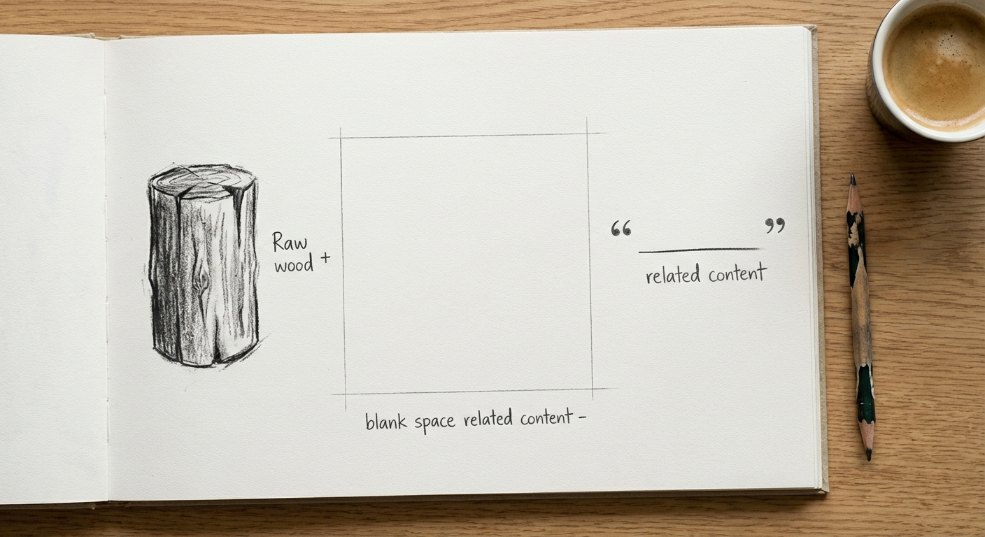 Raw
wood +
“ ”
related content
blank space related content –